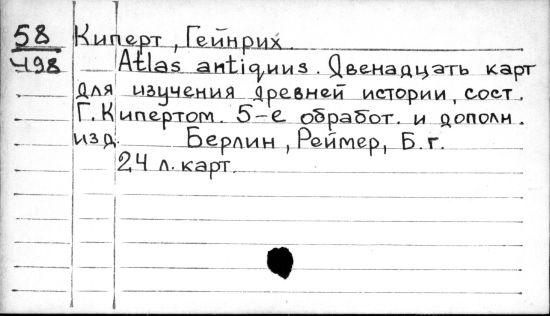 58 Киперт, Гейнрих
498 Atlas antiquus. Двенадцать карт
для изучения древней истории, сост.
Г. Кипертом. 5-е обработ. и дополн.
изд. Берлин, Реймер, Б. г.
24 л. карт.